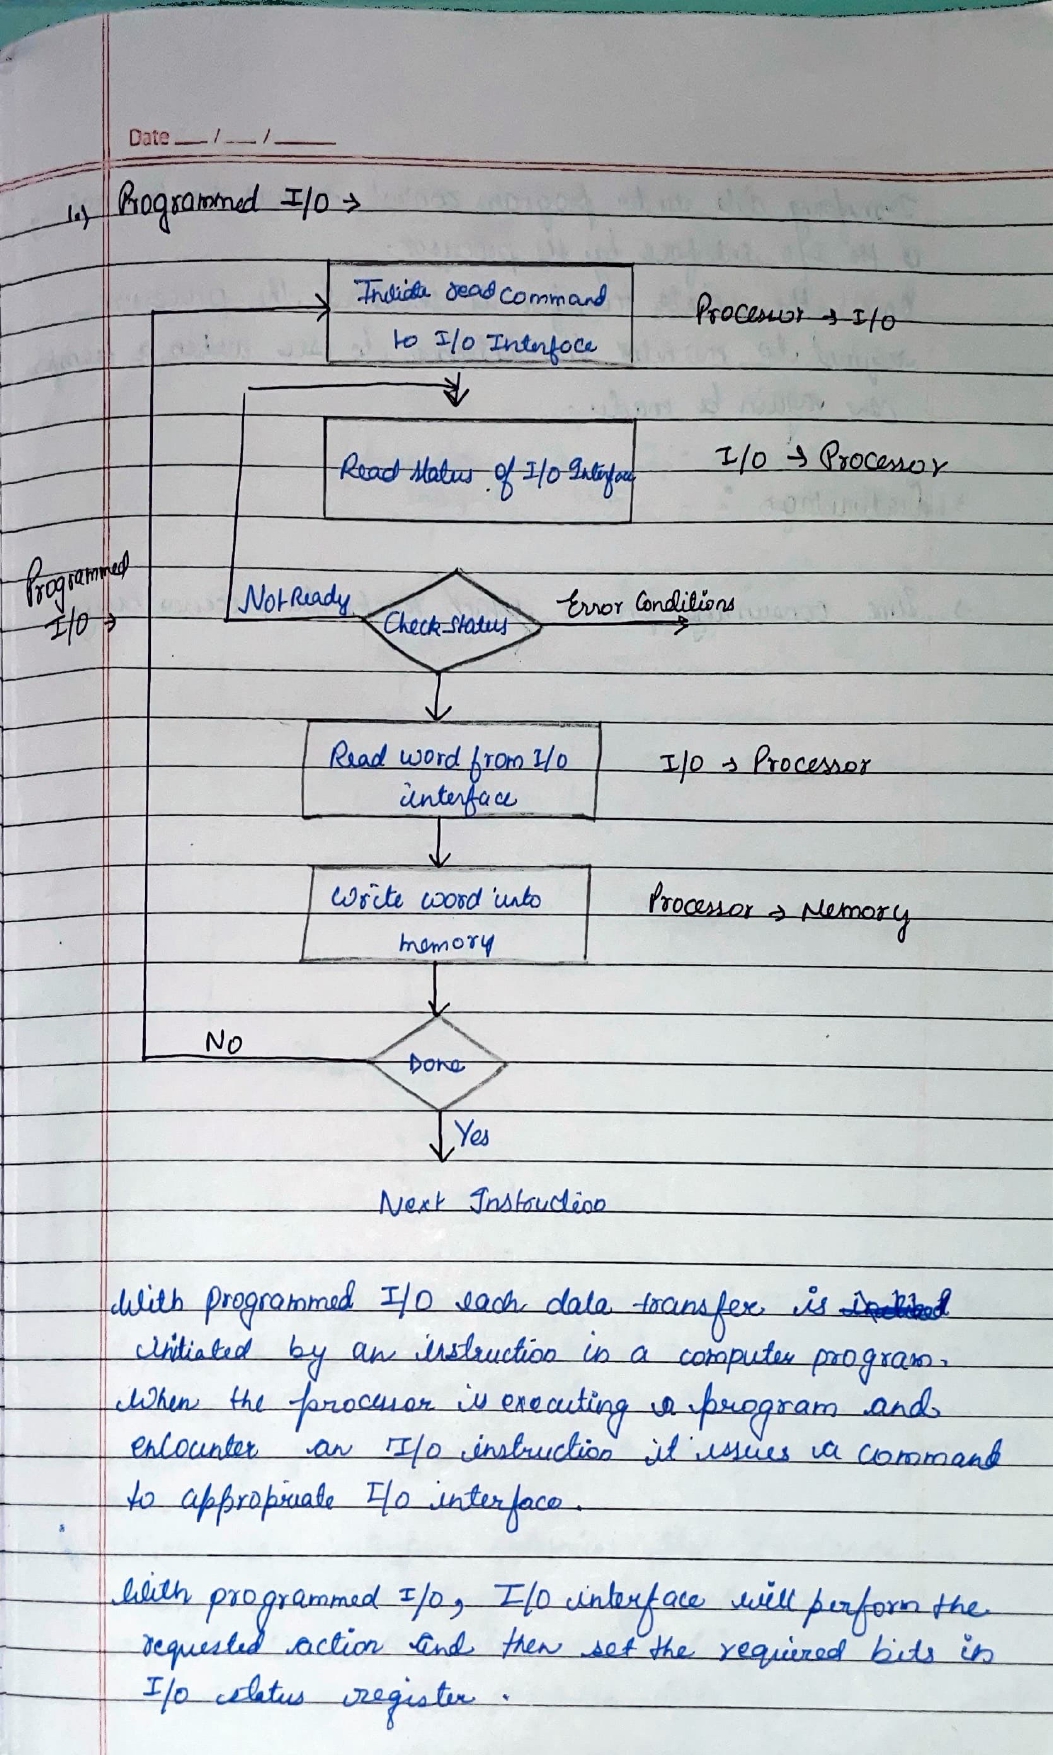 Date __/__/____
1.) Programmed I/O →
Indiate read command
to I/O Interface
Processor → I/O
Read status of I/O Interface
I/O → Processor
Programmed
I/O →
Not Ready
Check status
Error Conditions
Read word from I/O
interface
I/O → Processor
Write word into
memory
Processor → Memory
No
Done
Yes
Next Instruction
With programmed I/O each data transfer is
initiated by an instruction in a computer program.
When the processor is executing a program and
encounter an I/O instruction it issues a command
to appropriate I/O interface.
With programmed I/O, I/O interface will perform the
requested action and then set the required bits in
I/O status register.